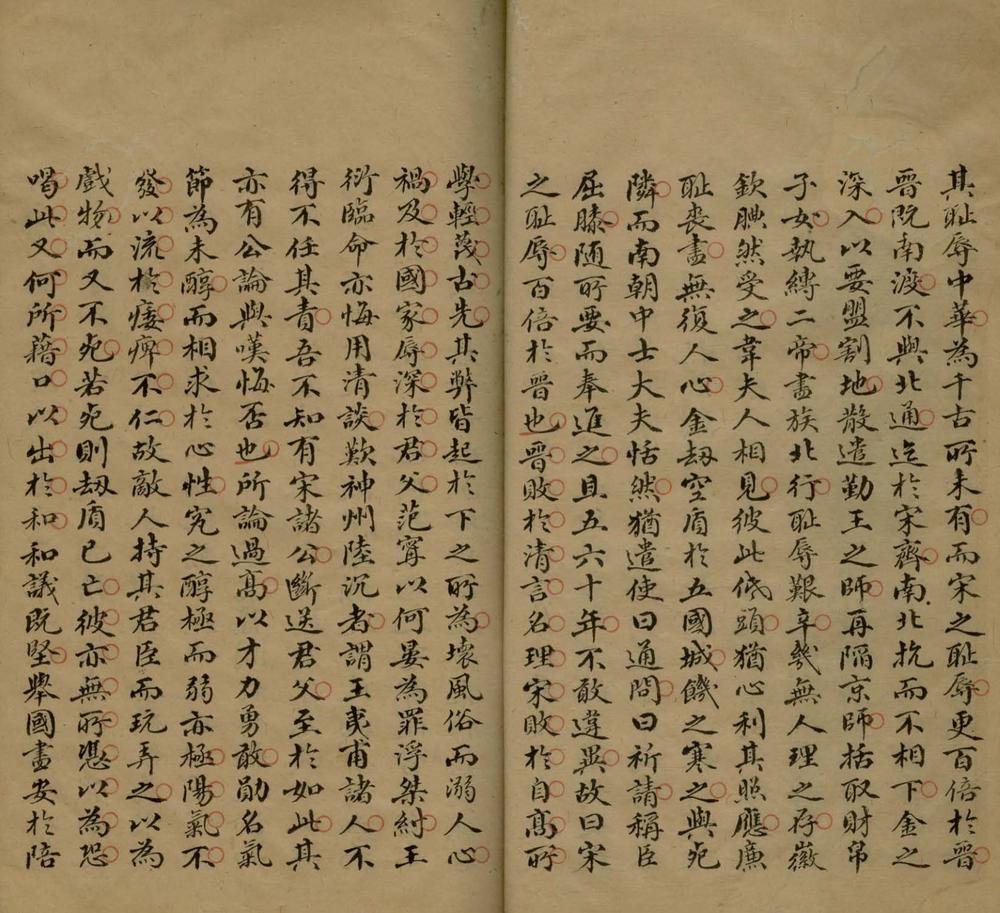 其耻辱中華為千古所未有而宋之耻辱更百倍於晉
晉既南渡不與北通迄於宋齊南北抗而不相下金之
深入以要盟割地散遣勤王之師再陷京師括取財帛
子女執縛二帝盡族北行耻辱艱辛幾無人理之存徽
欽腆然受之韋夫人相見彼此低頭猶心利其照應廉
耻喪盡無復人心金刼空盾於五國城饑之寒之與死
隣而南朝中士大夫恬然猶遣使曰通問曰祈請稱臣
屈膝随所要而奉進之且五六十年不敢違異故曰宋
之耻辱百倍於晉也晉敗於清言名理宋敗於自高所
學輕蔑古先其弊皆起於下之所為壞風俗而溺人心
禍及於國家辱深於君父范寗以何晏為罪浮桀紂王
衍臨命亦悔用清談歎神州陸沉者謂王夷甫諸人不
得不任其責吾不知有宋諸公斷送君父至於如此其
亦有公論與嘆悔否也所論過高以才力勇敢勛名氣
節為未醇而相求於心性究之醇極而弱亦極陽氣不
發以流於痿痺不仁故敵人持其君臣而玩弄之以為
戲物而又不死若死則刼盾已亡彼亦無所慿以為恐
喝此又何所藉口以出於和和議既堅舉國盡安於陪